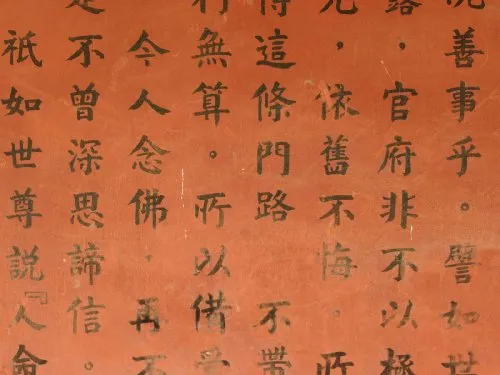 善事乎。譬如世
露，官府非不以極
，依舊不悔．所
得這條門路　不帶
行無算。所以借
今人念佛，再不
是不曾深思諦信。
祇如世尊説『人命